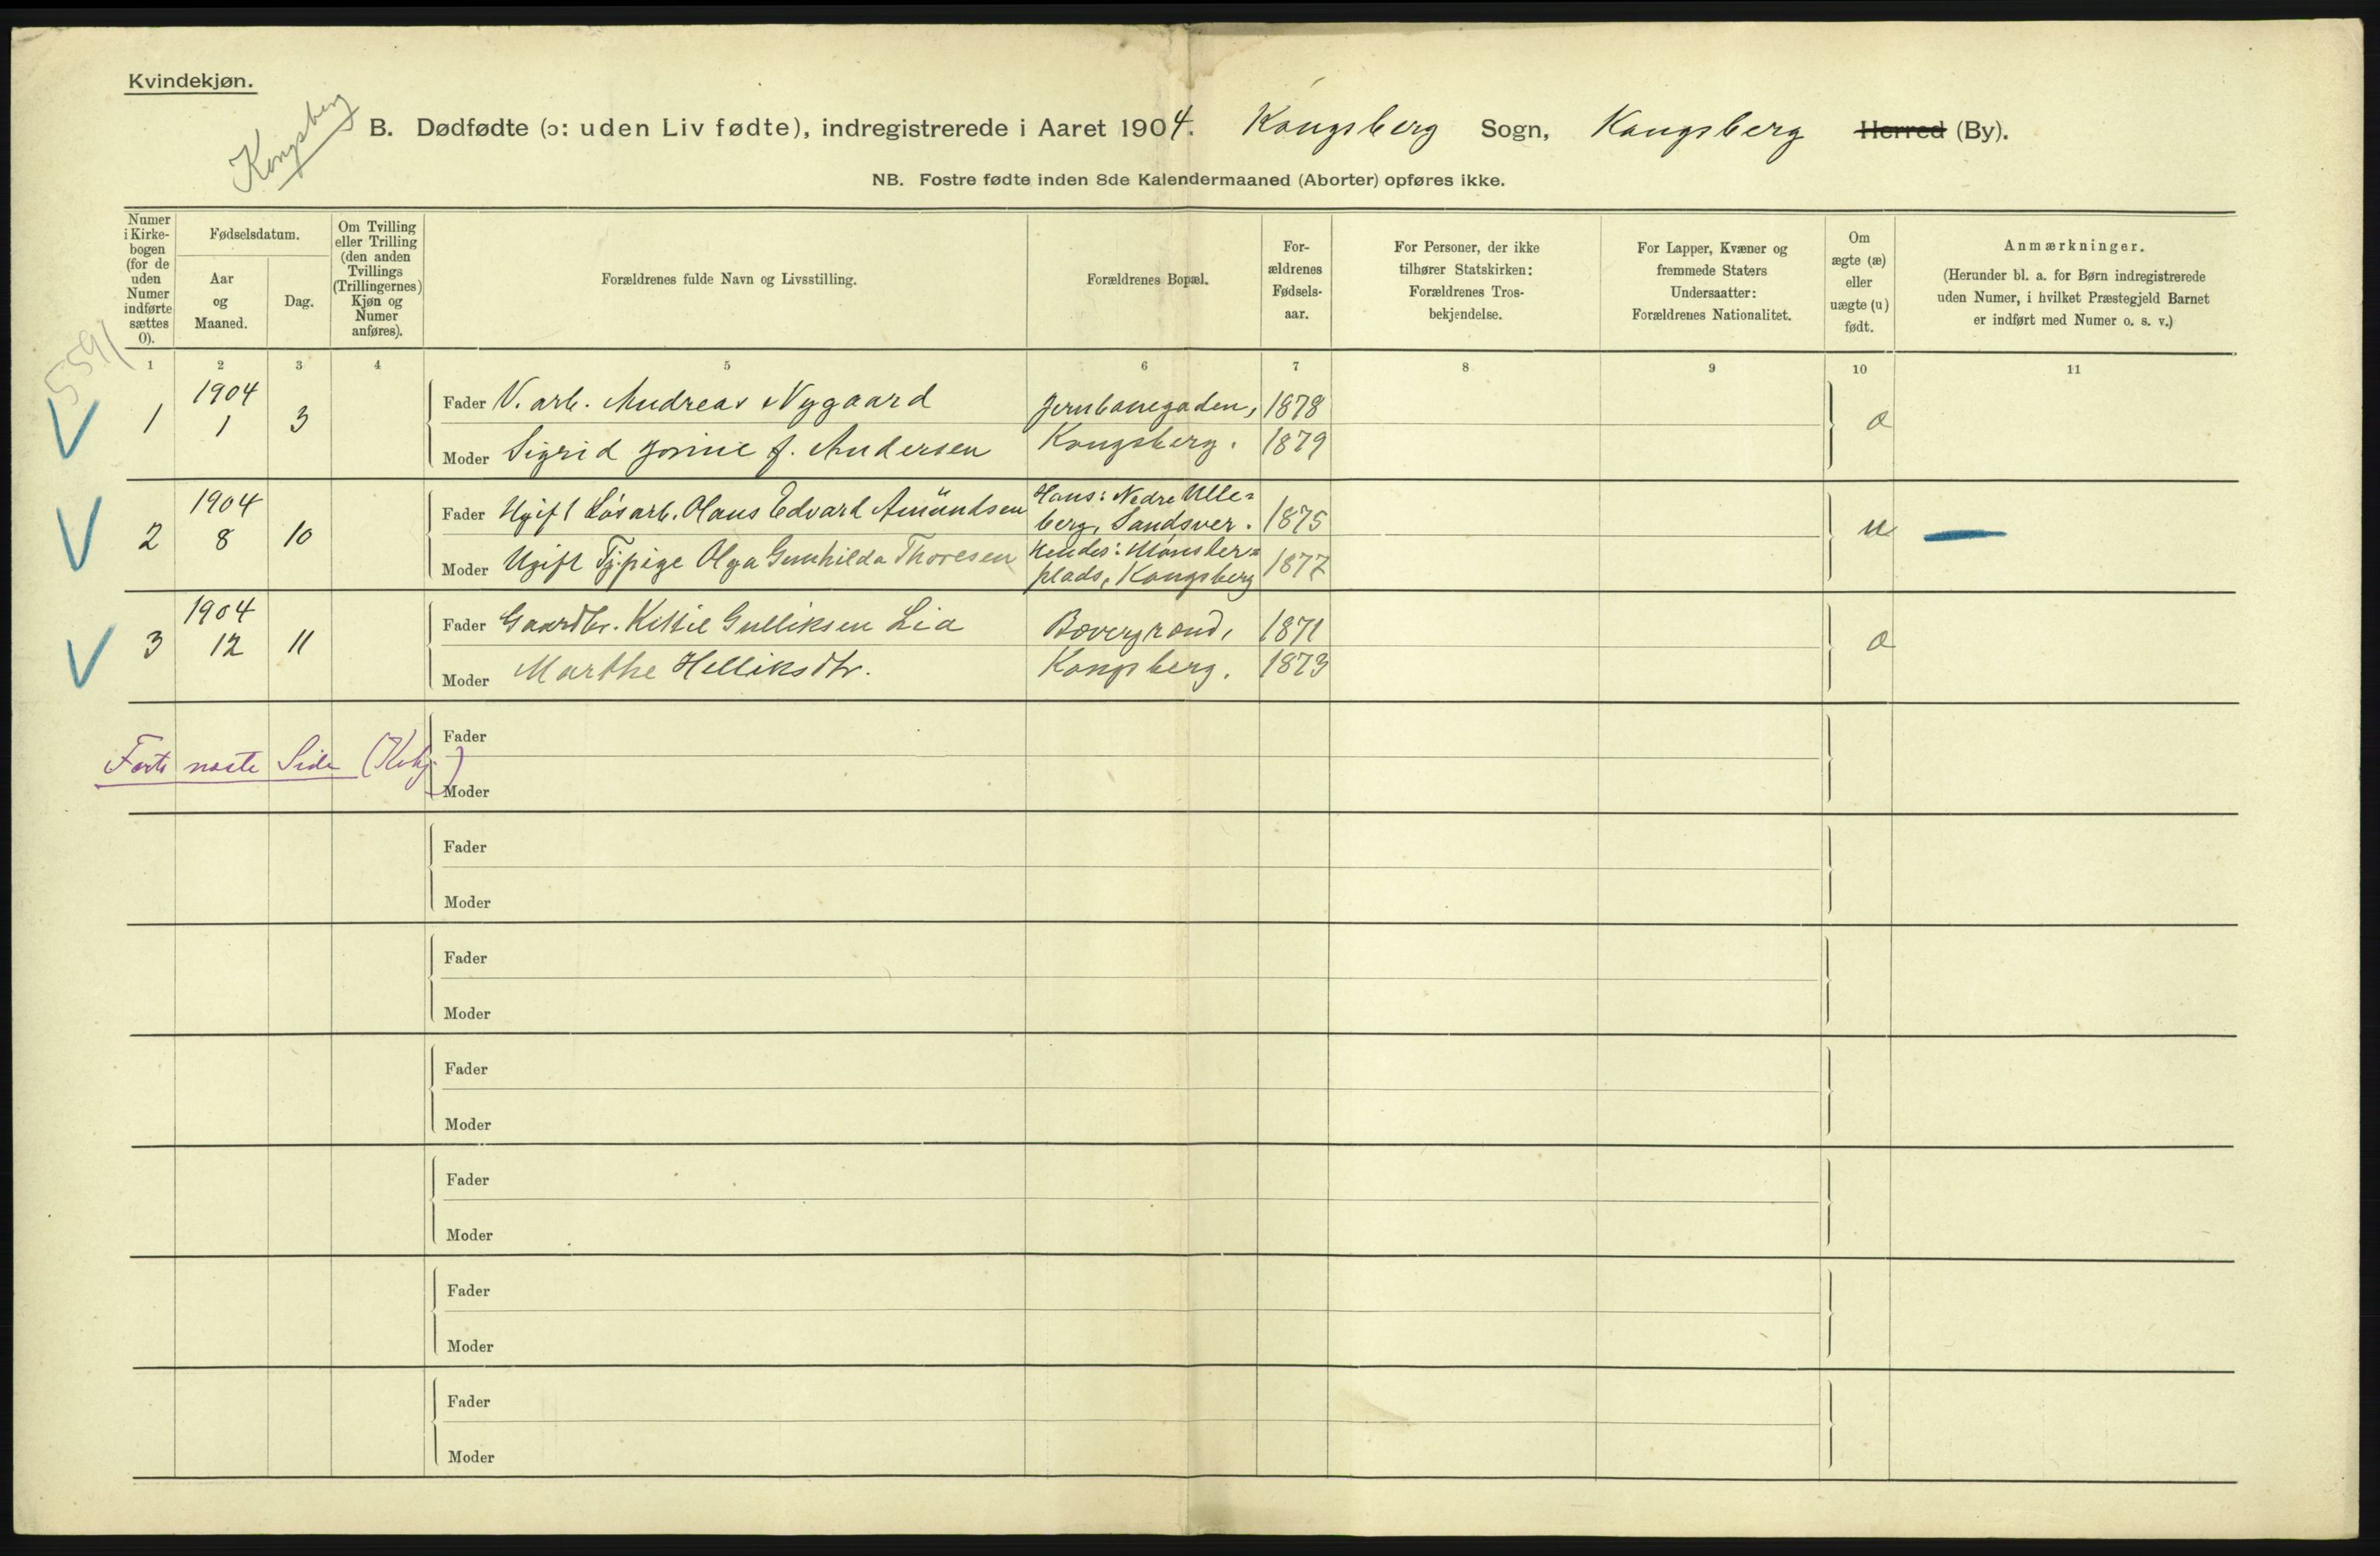 Kvindekjøn.
Kongsberg
B. Dødfødte (ɔ: uden Liv fødte), indregistrerede i Aaret 1904. Kongsberg Sogn, Kongsberg Herred (By).
NB. Fostre fødte inden 8de Kalendermaaned (Aborter) opføres ikke.
Numer
i Kirke-
bogen
(for de
uden
Numer
indførte
sættes
0).
Fødselsdatum.
Aar
og
Maaned.
Dag.
Om Tvilling
eller Trilling
(den anden
Tvillings
(Trillingernes)
Kjøn og
Numer
anføres).
Forældrenes fulde Navn og Livsstilling.
Forældrenes Bopæl.
For-
ældrenes
Fødsels-
aar.
For Personer, der ikke
tilhører Statskirken:
Forældrenes Tros-
bekjendelse.
For Lapper, Kvæner og
fremmede Staters
Undersaatter:
Forældrenes Nationalitet.
Om
ægte (æ)
eller
uægte (u)
født.
Anmærkninger.
(Herunder bl. a. for Børn indregistrerede
uden Numer, i hvilket Præstegjeld Barnet
er indført med Numer o. s. v.)
5591
1 2 3 4 5 6 7 8 9 10 11
1 1904 1 3
Fader V. arb. Andreas Nygaard Jernbanegaden, 1878
Moder Sigrid Josine f. Andersen Kongsberg. 1879
æ
2 1904 8 10
Fader Ugift Løsarb. Olaus Edvard Amündsen Hans: Nedre Ulle=
berg, Sandsver. 1875
Moder Ugift Tj.pige Olga Gunhilda Thoresen Hendes:
plads, Kongsberg 1877
u
3 1904 12 11
Fader Gaardbr. Kittil Gulliksen Lia 1871
Moder Marthe Helliksdtr. Kongsberg. 1873
æ
Forts næste Side (Kbg.)
Fader
Moder
Fader
Moder
Fader
Moder
Fader
Moder
Fader
Moder
Fader
Moder
Fader
Moder